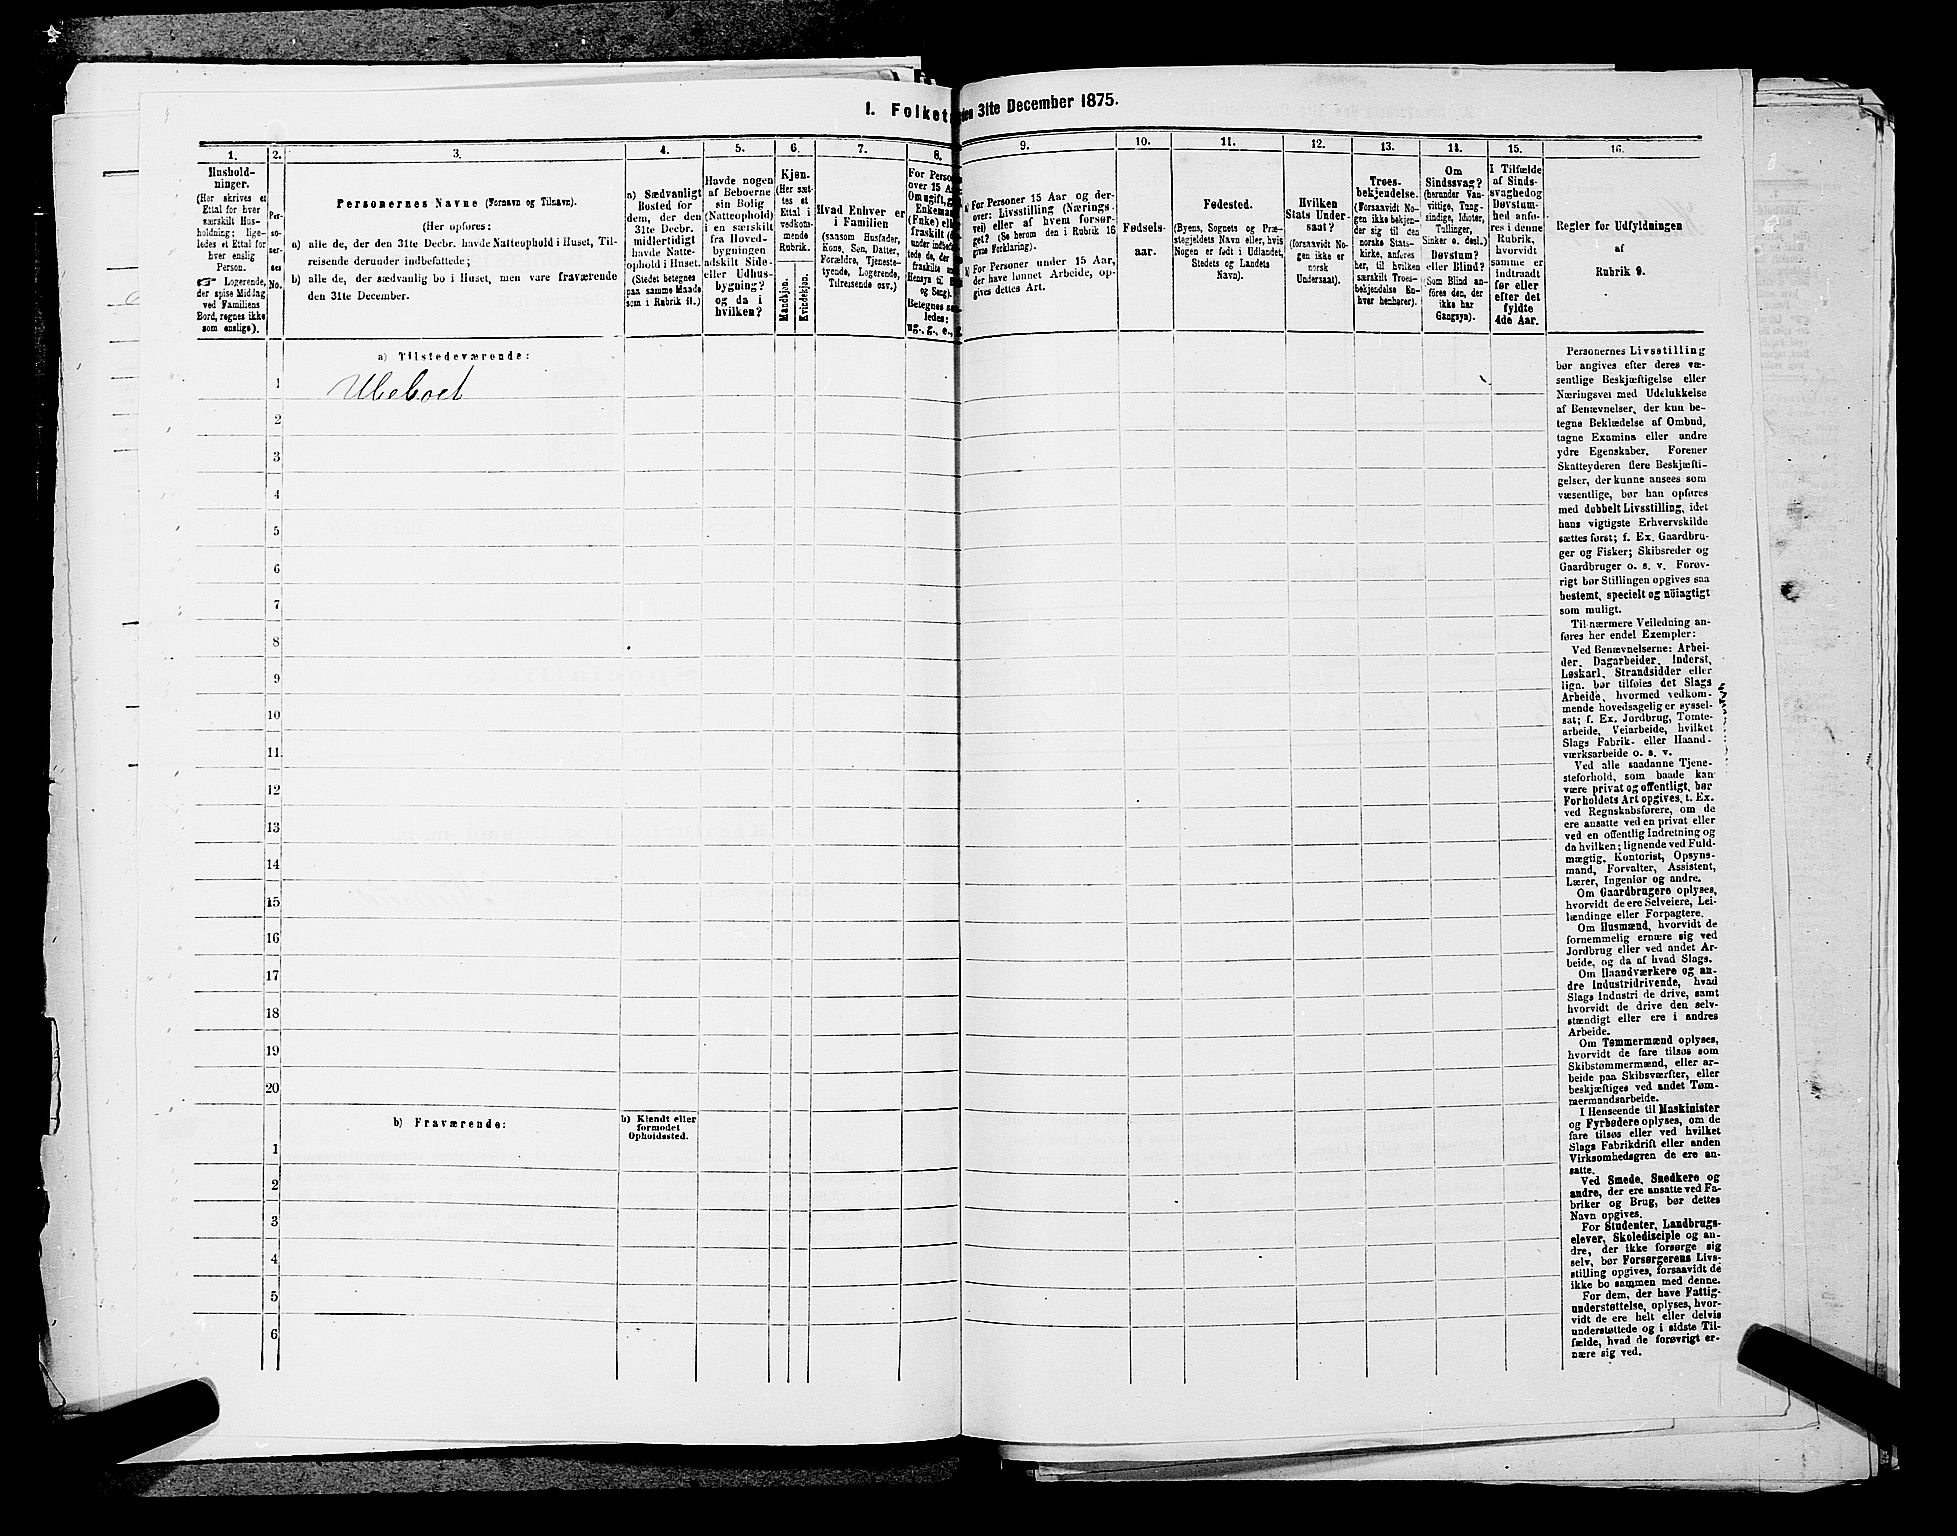 1. Folket den 31te December 1875.
1.
Husholdninger.
(Her skrives et
Ettal for hver
særskilt Husholdning;
ligeledes et Ettal for
hver enslig
Person.
☞ Logerende,
der spise Middag
ved Familiens
Bord, regnes ikke
som enslige).
2.
Personernes
No.
3.
Personernes Navne (Fornavn og Tilnavn).
(Her opføres:
a) alle de, der den 31te Decbr. havde Natteophold i Huset, Tilreisende derunder indbefattede;
b) alle de, der sædvanlig bo i Huset, men vare fraværende
den 31te December.
4.
a) Sædvanligt
Bosted for
dem, der den
31te Decbr.
midlertidigt
havde Natteophold i Huset.
(Stedet betegnes
paa samme Maade
som i Rubrik 11.)
5.
Havde nogen
af Beboerne
sin Bolig
(Natteophold)
i en særskilt
fra Hovedbygningen
adskilt Side-
eller Udhusbygning?
og da i
hvilken?
6.
Kjøn.
(Her sættes et
Ettal i
vedkommende
Rubrik.
Mandkjøn.
Kvindekjøn.
7.
Hvad Enhver er
i Familien
(saasom Husfader,
Kone, Søn, Datter,
Forældre, Tjenestetyende, Logerende,
Tilreisende osv.)
8.
For Person
over 15 A
Om ugift, g
Enkeman
(Enke) ell
fraskilt
under indbe
tede de, der
fraskilte
Hensyn til
og Seng).
Betegnes saaledes:
ug., g., e.,
9.
For Personer 15 Aar og derover: Livsstilling (Næringsvei) eller af hvem forsørget? (Se herom den i Rubrik 16
givne Forklaring).
For Personer under 15 Aar,
der have lønnet Arbeide, opgives dettes Art.
10.
Fødselsaar.
11.
Fødested.
(Byens, Sognets og Præstegjeldets Navn eller, hvis
Nogen er født i Udlandet,
Stedets og Landets
Navn).
12.
Hvilken
Stats Undersaat?
(forsaavidt Nogen ikke er
norsk
Undersaat).
13.
Troesbekjendelse.
(Forsaavidt Nogen ikke bekjender sig til den
norske Statskirke, anføres
her, til hvilken
særskilt Troesbekjendelse Enhver henhører).
14.
Om
Sindssvag?
(herunder Vanvittige, Tungsindige, Idioter,
Tullinger,
Sinker o. desl.)
Døvstum?
eller Blind?
(Som Blind anføres den, der
ikke har
Gangsyn).
15.
I Tilfælde
af Sindssvaghed og
Døvstumhed anføres i denne
Rubrik,
hvorvidt
samme er
indtraadt
før eller
efter det
fyldte
4de Aar.
16.
Regler for Udfyldningen
af
Rubrik 9.
a) Tilstedeværende:
1 Ubeboet
2
3
4
5
6
7
8
9
10
11
12
13
14
15
16
17
18
19
20
b) Fraværende:
b) Kjendt eller
formodet
Opholdssted.
1
2
3
4
5
6
Personernes Livsstilling
bør angives efter deres væsentlige Beskjæftigelse eller
Næringsvei med Udelukkelse
af Benævnelser, der kun betegne Beklædelse af Ombud,
tagne Examina eller andre
ydre Egenskaber. Forener
Skatteyderen flere Beskjæftigelser, der kunne ansees som
væsentlige, bør han opføres
med dobbelt Livsstilling, idet
hans vigtigste Erhvervskilde
sættes først; f. Ex. Gaardbruger og Fisker; Skibsreder og
Gaardbruger o. s. v. Forøvrigt bør Stillingen opgives saa
bestemt, specielt og nöiagtigt
som muligt.
Til nærmere Veiledning anføres her endel Exempler:
Ved Benævnelserne: Arbeider, Dagarbeider, Inderst,
Løskarl, Strandsidder eller
lign. bør tilføies det Slags
Arbeide, hvormed vedkommende hovedsagelig er sysselsat; f. Ex. Jordbrug, Tomtearbeide, Veiarbeide, hvilket
Slags Fabrik- eller Haandværksarbeide o. s. v.
Ved alle saadanne Tjenesteforhold, som baade kan
være privat og offentligt, bør
Forholdets Art opgives, t. Ex.
ved Regnskabsførere, om de
ere ansatte ved en privat eller
ved en offentlig Indretning og
da hvilken; lignende ved Fuldmægtig, Kontorist, Opsynsmand, Forvalter, Assistent,
Lærer, Ingeniør og andre.
Om Gaardbrugere oplyses,
hvorvidt de ere Selveiere, Leilændinge eller Forpagtere.
Om Husmænd, hvorvidt de
fornemmelig ernære sig ved
Jordbrug eller ved andet Arbeide, og da af hvad Slags.
Om Haandværkere og andre Industridrivende, hvad
Slags Industri de drive, samt
hvorvidt de drive den selvstændigt eller ere i andres
Arbeide.
Om Tømmermænd oplyses,
hvorvidt de fare tilsøs som
Skibstømmermænd, eller arbeide paa Skibsværfter, eller
beskjæftiges ved andet Tømmermandsarbeide.
I Henseende til Maskinister
og Fyrbødere oplyses, om de
fare tilsøs eller ved hvilket
Slags Fabrikdrift eller anden
Virksomhedsgren de ere ansatte.
Ved Smede, Snedkere og
andre, der ere ansatte ved Fabriker og Brug, bør dettes
Navn opgives.
For Studenter, Landbrugselever, Skoledisciple og andre, der ikke forsørge sig
selv, bør Forsørgerens Livsstilling opgives, forsaavidt de
ikke bo sammen med denne.
For dem, der have Fattigunderstøttelse, oplyses, hvorvidt de ere helt eller delvis
understøttede og i sidste Tilfælde, hvad de forøvrigt ernære sig ved.